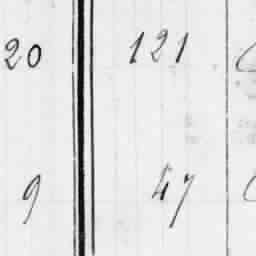 20 121
9 47